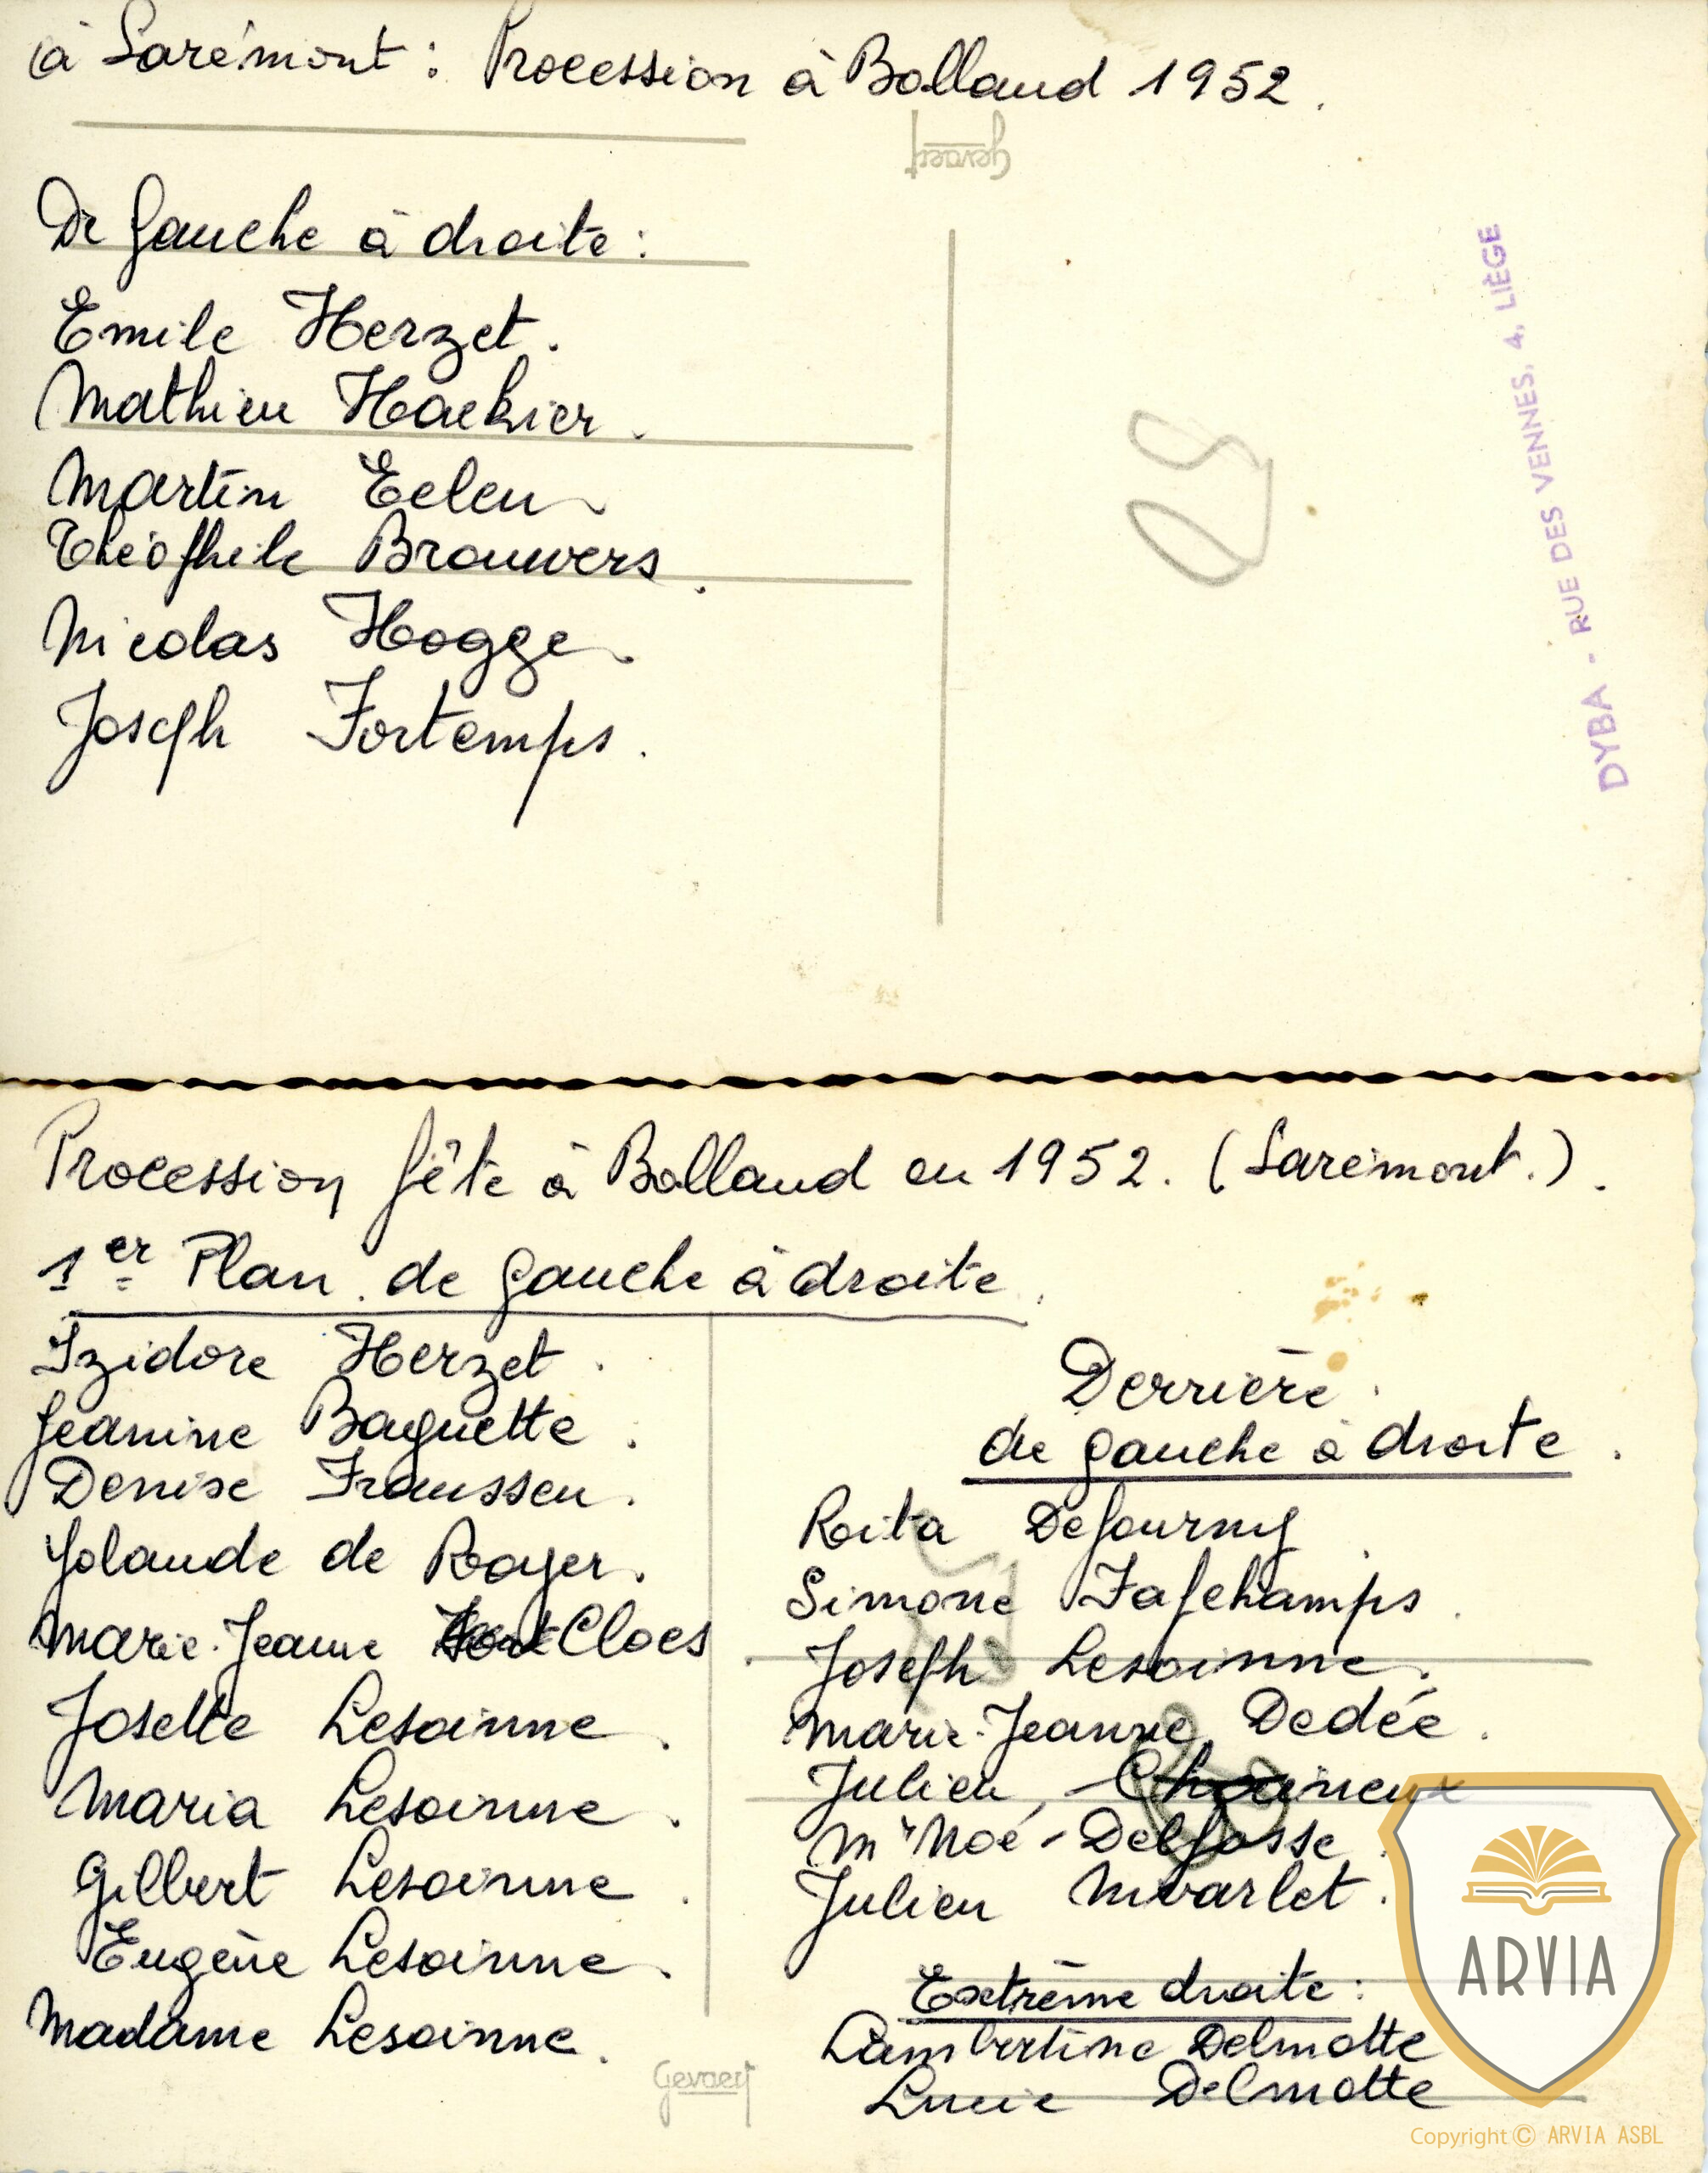 à Sarémont : Procession à Bolland 1952.
Gevaert
De gauche à droite :
Emile Herzet.
Mathieu Hackier.
Martin Eelen
Théophile Brouwers.
Nicolas Hogge.
Joseph Fortemps.
DYBA - RUE DES VENNES, 4, LIÈGE
Procession fête à Bolland en 1952. (Sarémont.).
1er Plan. de gauche à droite.
Izidore Herzet.
Jeanine Baguette.
Denise Franssen.
Yolande de Royer.
Marie-Jeanne Cloes
Josette Lesoinne.
Maria Lesoinne.
Gilbert Lesoinne.
Eugène Lesoinne.
Madame Lesoinne.
Gevaert
Derrière.
de gauche à droite.
Rita Defourny.
Simone Fafchamps.
Joseph Lesoinne.
Marie-Jeanne Dedée.
Julien, Chaineux
Mr Noé - Delfosse.
Julien
Extrême droite :
Lambertine Delmotte
Lucie Delmotte
ARVIA
Copyright © ARVIA ASBL